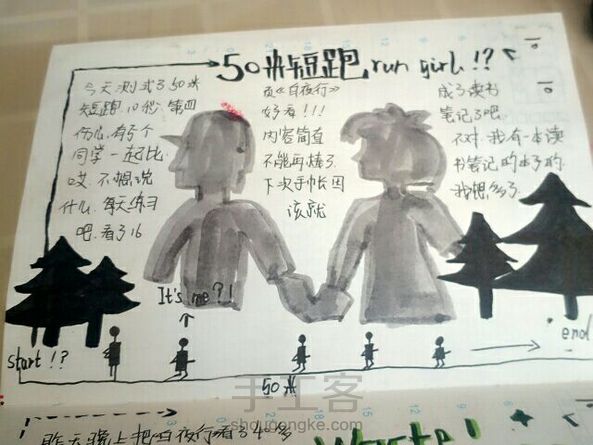 50米短跑 run girl!?
今天测试了50米
短跑.10秒.第四
伤心.有5个
同学一起比
哎.不想说
什么.每天练习
吧.看了16
页《白夜行》
好看!!!
内容简直
不能再棒了
下次手帐因
该就
成了读书
笔记了吧.
不对.我有一本读
书笔记的本子的.
我想多了.
It's me?!
start!?
end
50米
手工客
shougongke.com
昨天晚上把白夜行看了40多